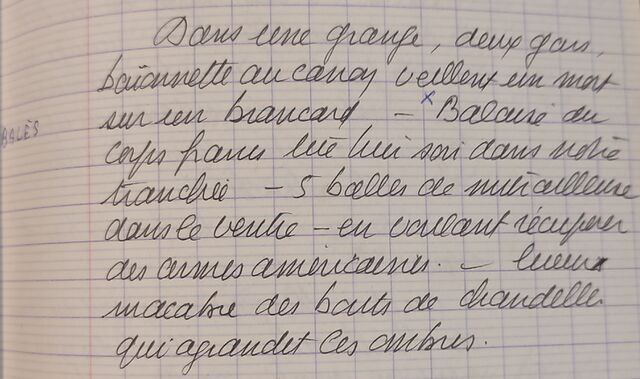 Dans une grange, deux gars,
baïonnette au canon veillent un mort
sur un brancard - x Balaisé du
BALÈS
corps francs tué hier soir dans notre
tranchée - 5 balles de mitrailleuse
dans le ventre - en voulant récupérer
des armes américaines. - lueur
macabre des bouts de chandelles
qui agrandit ces ombres.